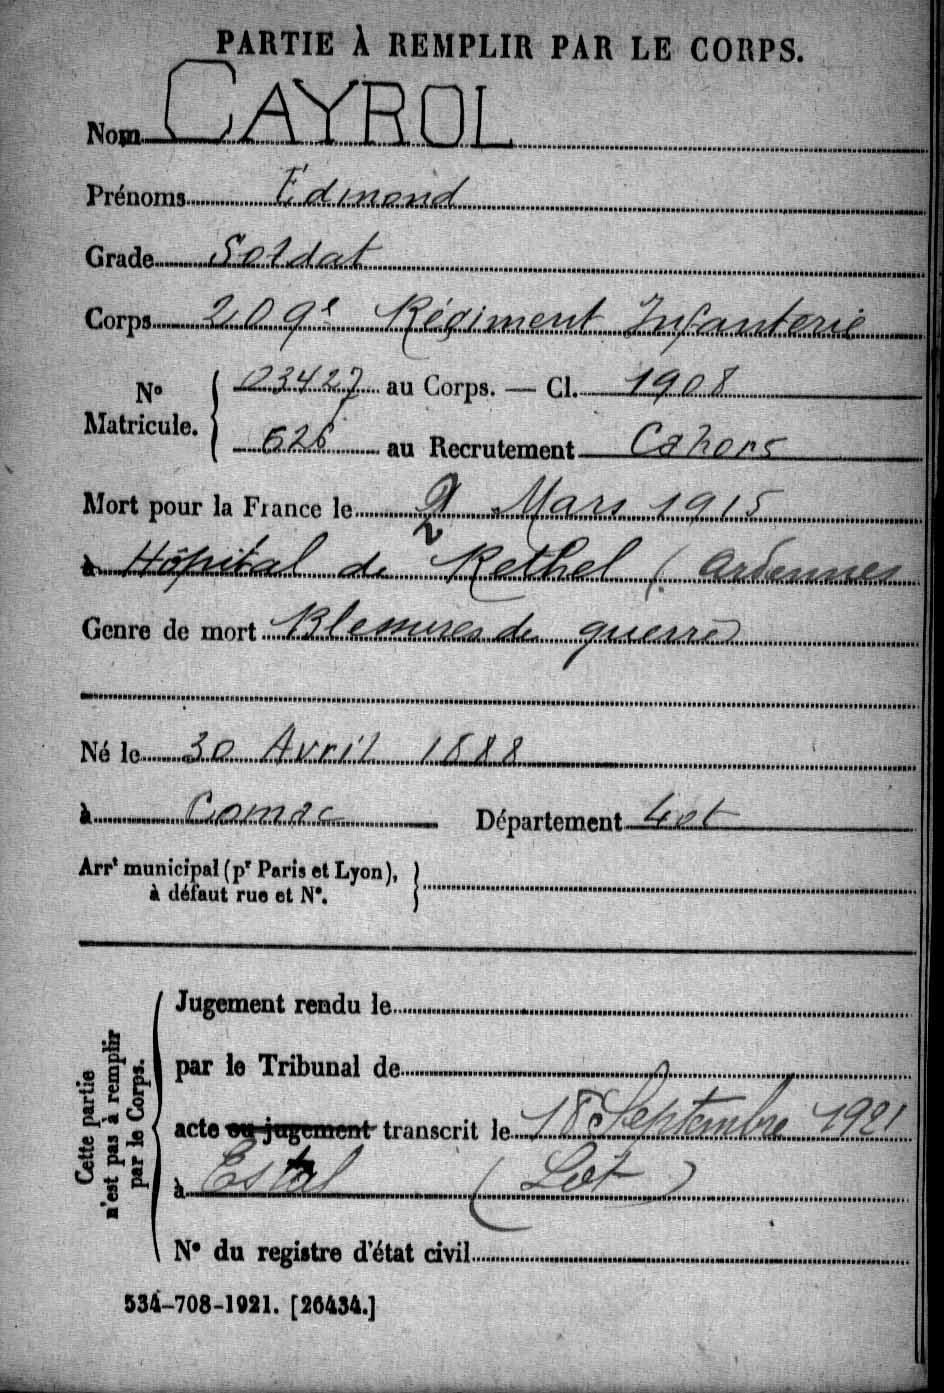 PARTIE À REMPLIR PAR LE CORPS.
Nom CAYROL
Prénoms Edmond
Grade Soldat
Corps 209e Régiment Infanterie
No Matricule. 03427 au Corps. — Cl. 1908
626 au Recrutement Cahors
Mort pour la France le 2 Mars 1915
à Hôpital de Rethel (Ardennes
Genre de mort Blessures de guerre
Né le 30 Avril 1888
à Comiac Département Lot
Arrt municipal (pr Paris et Lyon),
à défaut rue et No.
Cette partie
n'est pas à remplir
par le Corps.
Jugement rendu le
par le Tribunal de
acte ou jugement transcrit le 18 Septembre 1921
à Estal (Lot)
No du registre d'état civil
534-708-1921. [26434.]